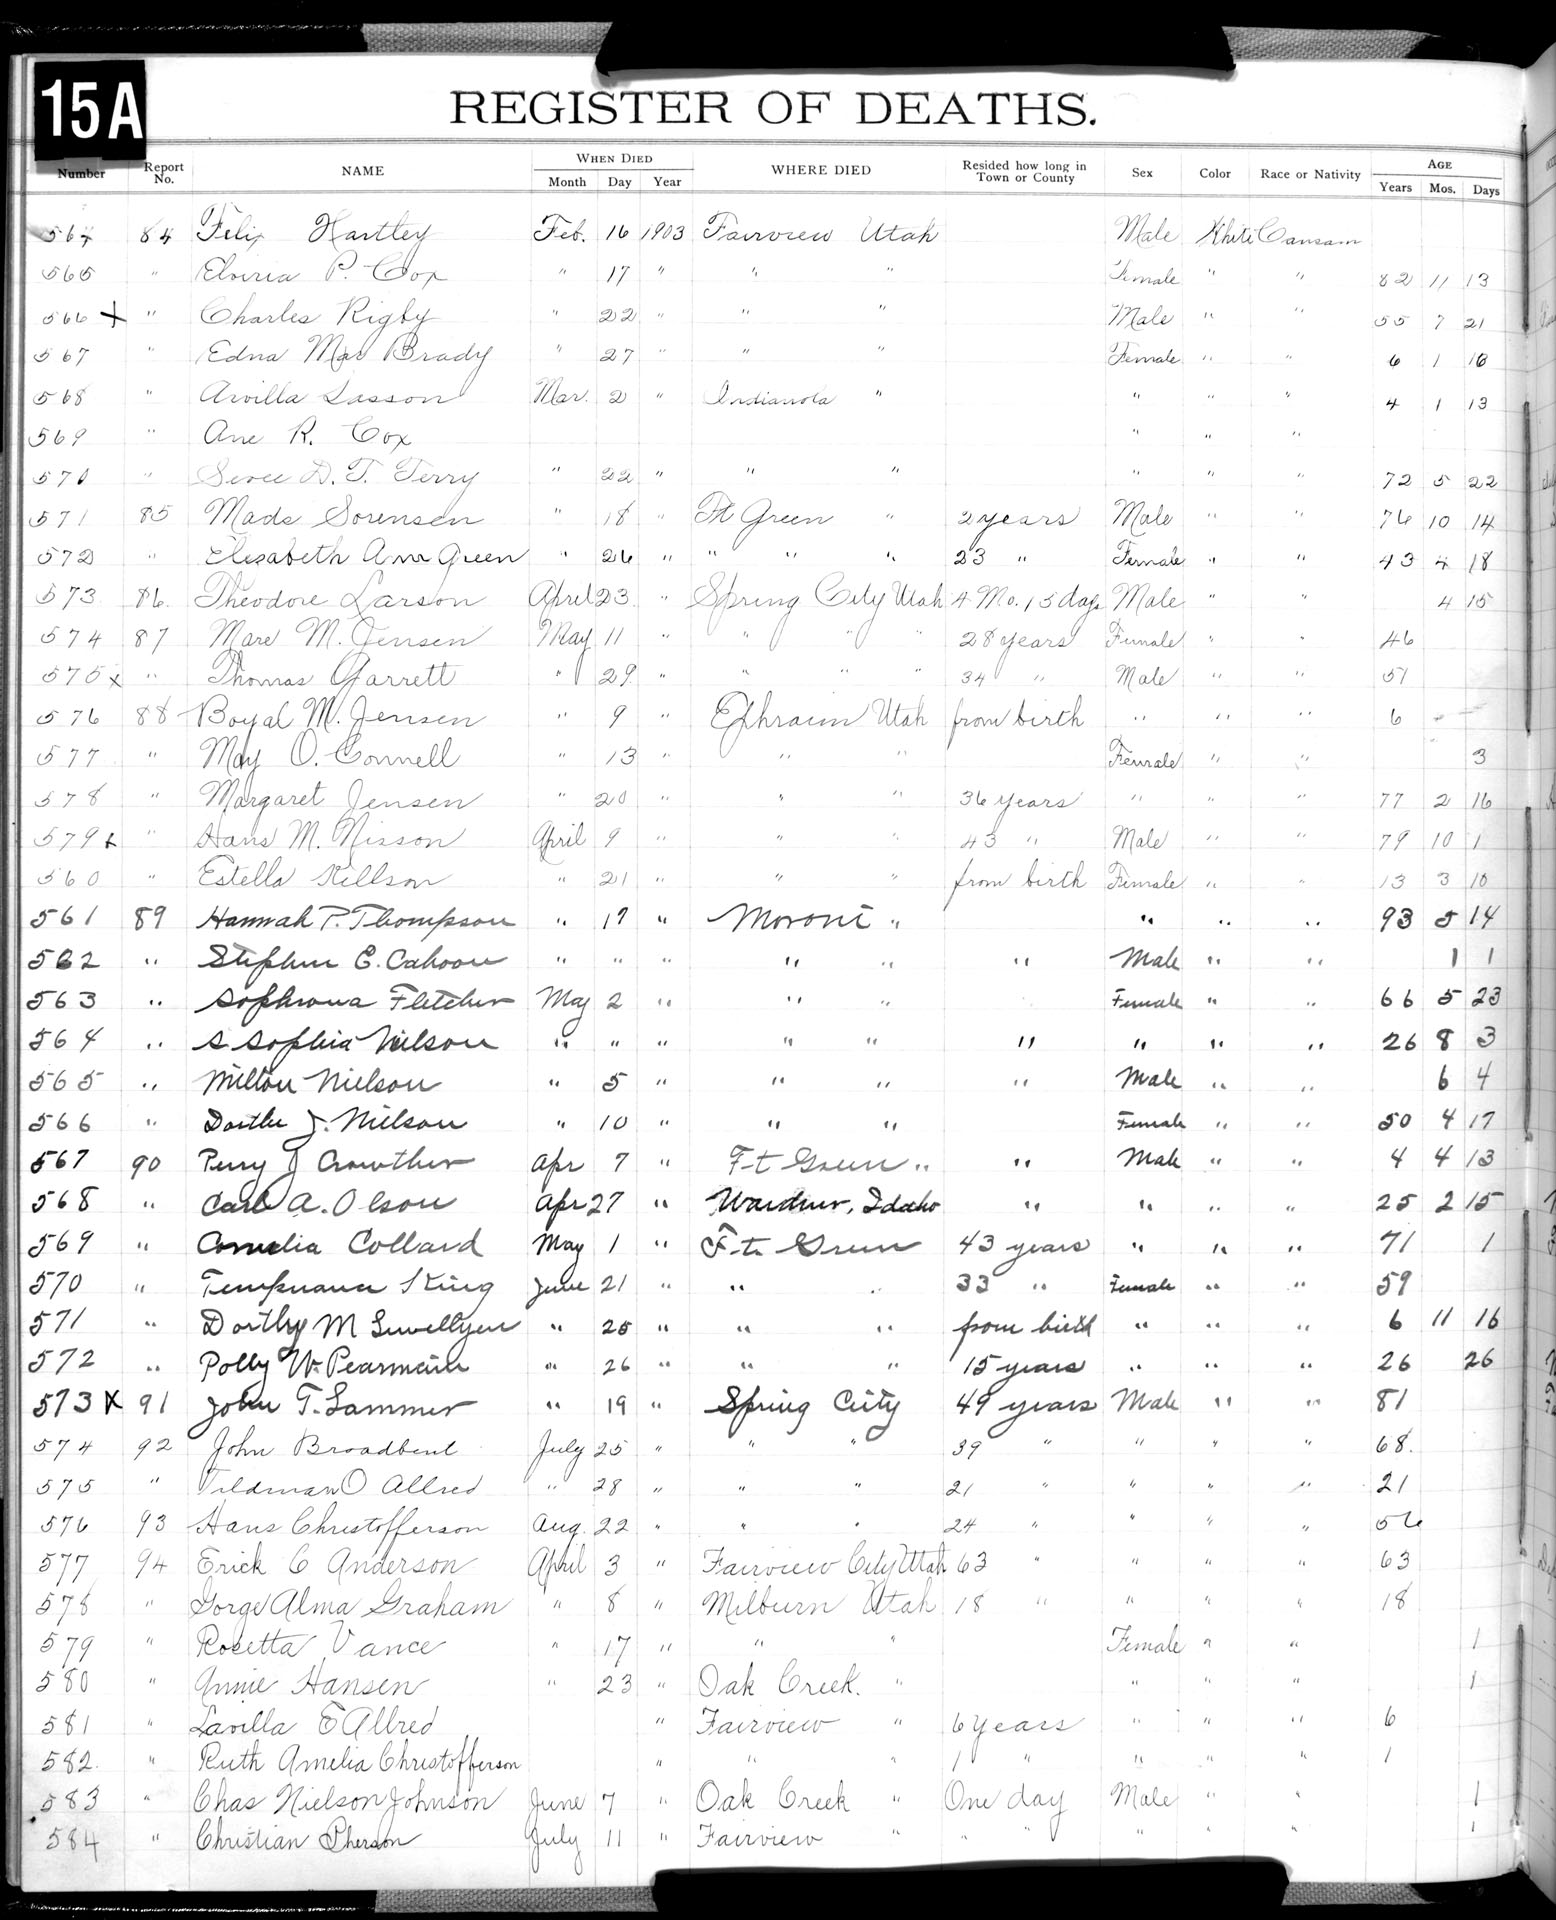 15A
REGISTER OF DEATHS.
Number Report No. NAME WHEN DIED Month Day Year WHERE DIED Resided how long in Town or County Sex Color Race or Nativity AGE Years Mos. Days
564 84 Felix Hartley Feb. 16 1903 Fairview Utah Male White Caucasn
565 " Elviria P. Cox " 17 " " " Female " " 82 11 13
566 x " Charles Rigby " 22 " " " Male " " 55 7 21
567 " Edna Mae Brady " 27 " " " Female " " 6 1 10
568 " Arvilla Sasson Mar. 2 " Indianola " " " " 4 1 13
569 " Ane R. Cox " " "
570 " D. T. Terry " 22 " " " " " " 72 5 22
571 85 Mads Sorensen " 18 " Ft Green " 2 years Male " " 76 10 14
572 " Elisabeth Ann Green " 26 " " " " 23 " Female " " 43 4 18
573 86. Theodore Larson April 23 " Spring City Utah 4 Mo. 15 days Male " " 4 15
574 87 Mare M. Jensen May 11 " " " " 28 years Female " " 46
575 x " Thomas Garrett " 29. " " " " 34 " Male " " 51
576 88 Boyal M. Jensen " 9 " Ephraim Utah from birth " " " 6 - -
577 " May O. Connell " 13 " " " Female " " 3
578 " Margaret Jensen " 20 " " " 36 years " " " 77 2 16
579 x " Hans M. Nisson April 9 " " " 43 " Male " " 79 10 1
560 " Estella Killson " 21 " " " from birth Female " " 13 3 10
561 89 Hannah P. Thompson " 17 " Moroni " " " " 93 5 14
562 " Stephen E. Cahoon " " " " " " Male " " 1 1
563 " Sophrona Fletcher May 2 " " " Female " " 66 5 23
564 " S Sophia Nielson " " " " " " " " " 26 8 3
565 " Milton Nielson " 5 " " " " Male " " 6 4
566 " Dorthe J. Nielson " 10 " " " Female " " 50 4 17
567 90 Perry J Crowther Apr 7 " Ft Green " " Male " " 4 4 13
568 " Carl A. Olson Apr 27 " Wardner, Idaho " " " " 25 2 15
569 " Cornelia Collard May 1 " Ft. Green 43 years " " " 71 1
570 " King June 21 " " " 33 " Female " " 59
571 " Dorthy M Lewellyen " 25 " " " from birth " " " 6 11 16
572 " Polly W. Pearmain " 26 " " " 15 years " " " 26 26
573 x 91 John T. Lammer " 19 " Spring City 49 years Male " " 81
574 92 John Broadbent July 25 " " " 39 " " " " 68.
575 " Tildman O Allred " 28 " " " 21 " " " " 21
576 93 Hans Christofferson Aug. 22 " " " 24 " " " " 56
577 94 Erick C Anderson April 3 " Fairview City Utah 63 " " " " 63
578 " Gorge Alma Graham " 8 " Milburn Utah 18 " " " " 18
579 " Rosetta Vance " 17 " " " Female " " 1
580 " Annie Hansen " 23 " Oak Creek. " " " " 1
581 " Lavilla E Allred " Fairview " 6 years " " " 6
582. " Ruth Amelia Christofferson " " " 1 " " " " 1
583 " Chas Nielson Johnson June 7 " Oak Creek " One day Male " " 1
584 " Christian Pherson July 11 " Fairview " " " " " " 1